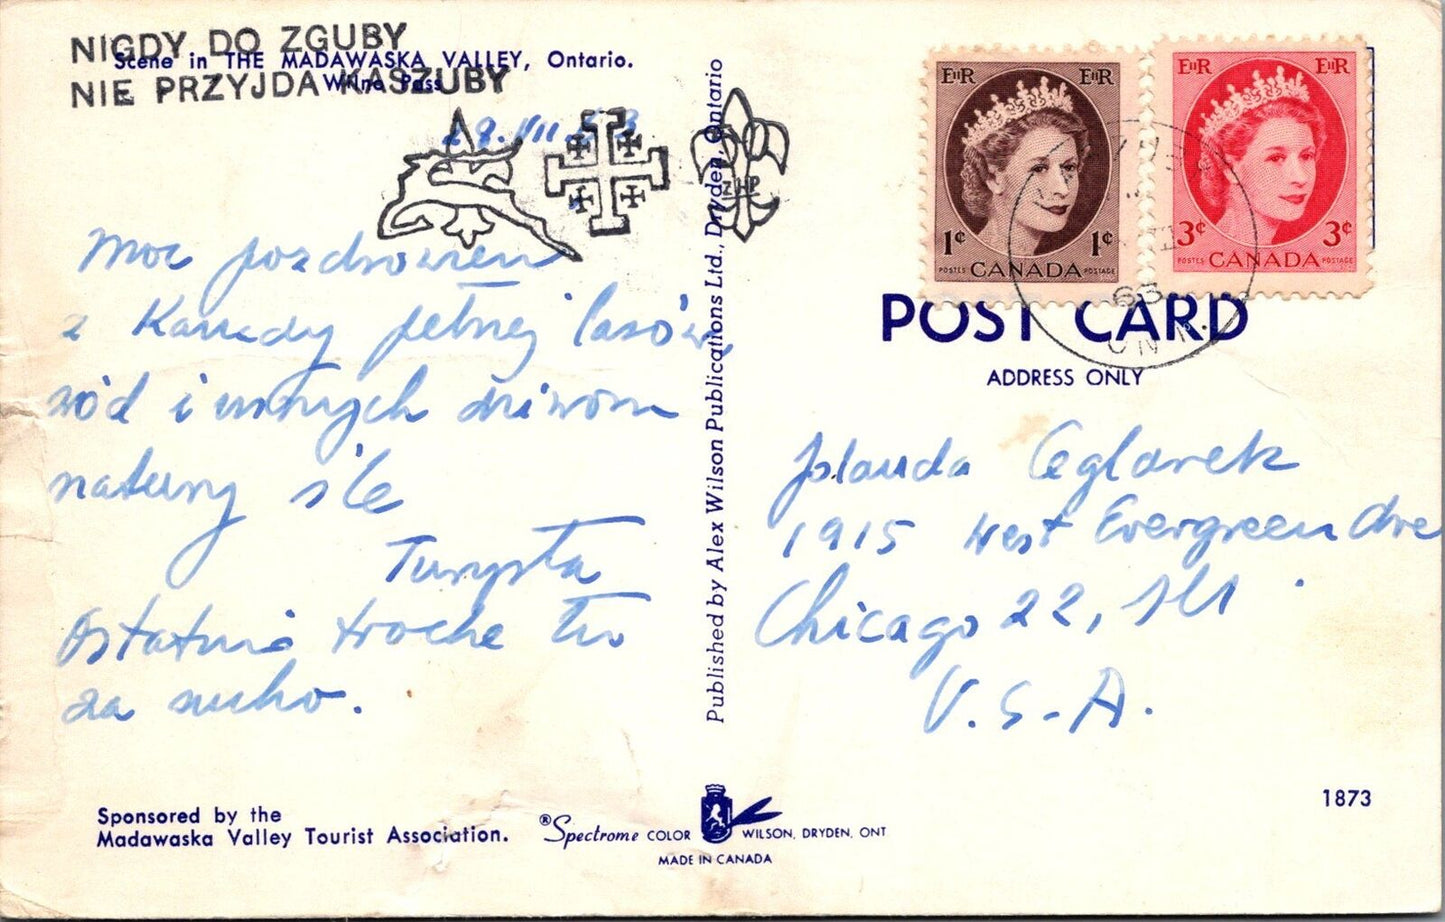 NIGDY DO ZGUBY
NIE PRZYJDA KASZUBY
Scene in THE MADAWASKA VALLEY, Ontario.
Wilno Pass
28.VII.63
ZHP
Moc pozdrowień
z Kanady pełnej lasów,
wód i innych dziwow
natury śle
Turysta
Ostatnio trochę tu
za sucho.
Sponsored by the
Madawaska Valley Tourist Association.
Published by Alex Wilson Publications Ltd., Dryden, Ontario
®Spectrome COLOR WILSON, DRYDEN, ONT
MADE IN CANADA
EIIR EIIR
1¢ 1¢
POSTES CANADA POSTAGE
EIIR EIIR
3¢ 3¢
POSTES CANADA POSTAGE
63
ONT.
POST CARD
ADDRESS ONLY
Jolanda Ceglarek
1915 West Evergreen Ave
Chicago 22, Ill
U.S.A.
1873